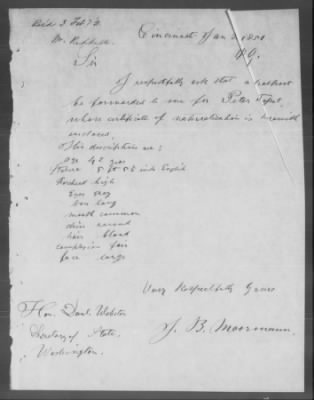 Cincinnati Jan 1851
Sir
I respectfully ask that a passport
be forwarded to me for Peter
whose certificate of naturalization is herewith
enclosed.
His description are:
age 42 years
Stature 5 ft 5 inch English
Forehead high
Eyes gray
nose long
mouth common
chin round
hair blond
complexion fair
face large
Very Respectfully Yours
J. B. Moormann.
Hon. Danl. Webster
Secretary of State.
Washington.